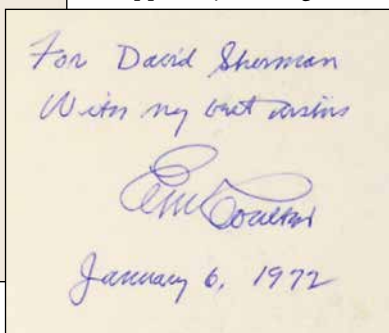 For David Sherman
With my best wishes
January 6, 1972